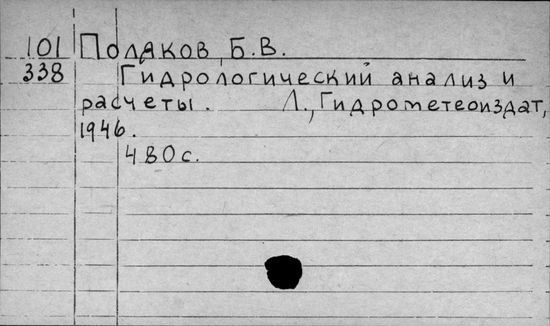 101 Поляков Б.В.
338 Гидрологический анализ и
расчеты. Л., Гидрометеоиздат,
1946.
480с.